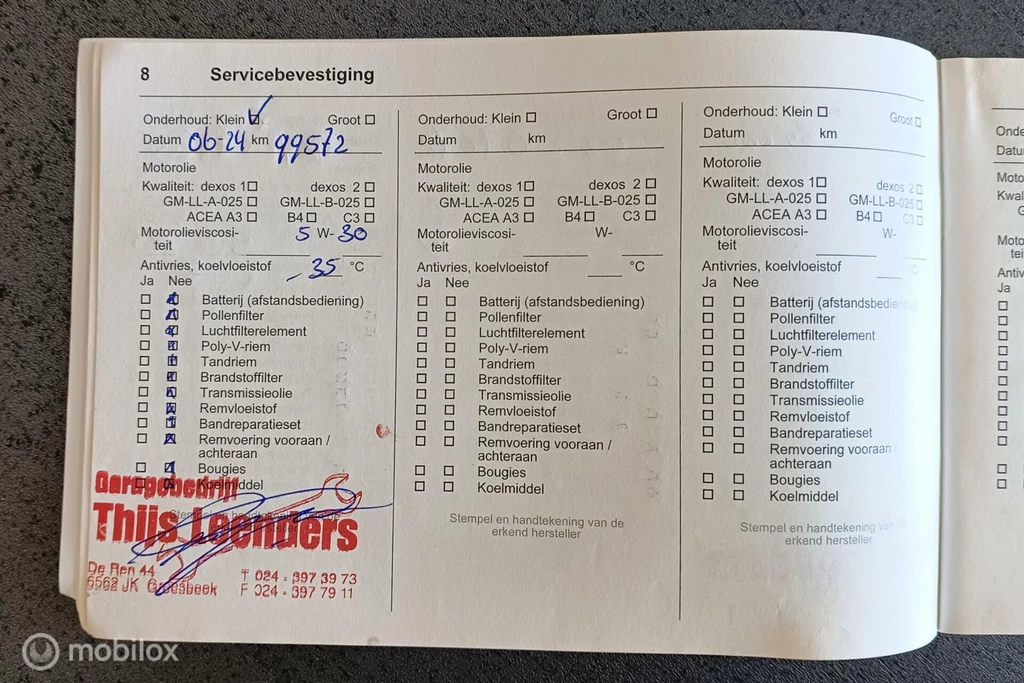 8 Servicebevestiging
Onderhoud: Klein Groot
Datum 06-24 km 99572
Motorolie
Kwaliteit: dexos 1 dexos 2
GM-LL-A-025 GM-LL-B-025
ACEA A3 B4 C3
Motorolieviscosi-
teit 5 W- 30
Antivries, koelvloeistof -35 °C
Ja Nee
Batterij (afstandsbediening)
Pollenfilter
Luchtfilterelement
Poly-V-riem
Tandriem
Brandstoffilter
Transmissieolie
Remvloeistof
Bandreparatieset
Remvoering vooraan /
achteraan
Bougies
Koelmiddel
Garagebedrijf
Thijs Leenders
De Ren 44
6562 JK Groesbeek
T 024 - 397 39 73
F 024 - 397 79 11
Onderhoud: Klein Groot
Datum km
Motorolie
Kwaliteit: dexos 1 dexos 2
GM-LL-A-025 GM-LL-B-025
ACEA A3 B4 C3
Motorolieviscosi-
teit W-
Antivries, koelvloeistof °C
Ja Nee
Batterij (afstandsbediening)
Pollenfilter
Luchtfilterelement
Poly-V-riem
Tandriem
Brandstoffilter
Transmissieolie
Remvloeistof
Bandreparatieset
Remvoering vooraan /
achteraan
Bougies
Koelmiddel
Stempel en handtekening van de
erkend hersteller
Onderhoud: Klein Groot
Datum km
Motorolie
Kwaliteit: dexos 1 dexos 2
GM-LL-A-025 GM-LL-B-025
ACEA A3 B4 C3
Motorolieviscosi-
teit W-
Antivries, koelvloeistof °C
Ja Nee
Batterij (afstandsbediening)
Pollenfilter
Luchtfilterelement
Poly-V-riem
Tandriem
Brandstoffilter
Transmissieolie
Remvloeistof
Bandreparatieset
Remvoering vooraan /
achteraan
Bougies
Koelmiddel
Stempel en handtekening van de
erkend hersteller
Ja
mobilox